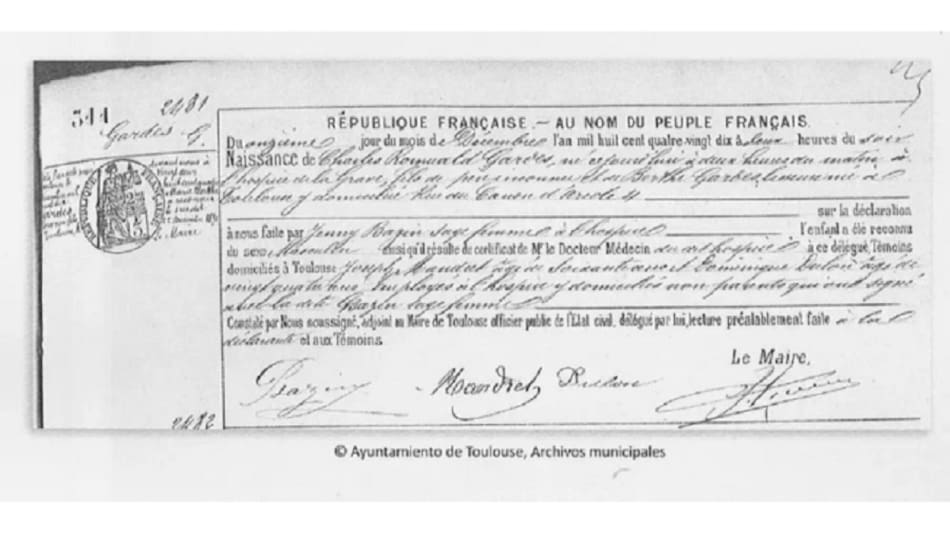 2481
344
Gardes
RÉPUBLIQUE FRANÇAISE. — AU NOM DU PEUPLE FRANÇAIS.
Du onzième jour du mois de Décembre l'an mil huit cent quatre-vingt dix à deux heures du soir
Naissance de Charles Romuald Gardes, né ce jourd'hui à deux heures du matin à
l'hospice de la Grave, fils de père inconnu et de Berthe Gardes à
Toulouse y domiciliée Rue du Canon d'Arcole 4
sur la déclaration
à nous faite par Jenny Bazin Sage femme à l'hospice l'enfant a été reconnu
du sexe Masculin ainsi qu'il résulte de certificat de Mr le Docteur Médecin du dit hospice à ce délégué, Témoins
domiciliés à Toulouse Joseph Mandret âgé de Dominique Dulon âgé de
vingt quatre ans, Employés à l'hospice y domiciliés non parents qui ont signé
avec la dite Bazin Sage femme
Constaté par Nous soussigné, adjoint au Maire de Toulouse officier public de l'Etat civil, délégué par lui, lecture préalablement faite à la
déclarante et aux Témoins.
Le Maire,
Bazin Mandret Dulon
2482
© Ayuntamiento de Toulouse, Archivos municipales